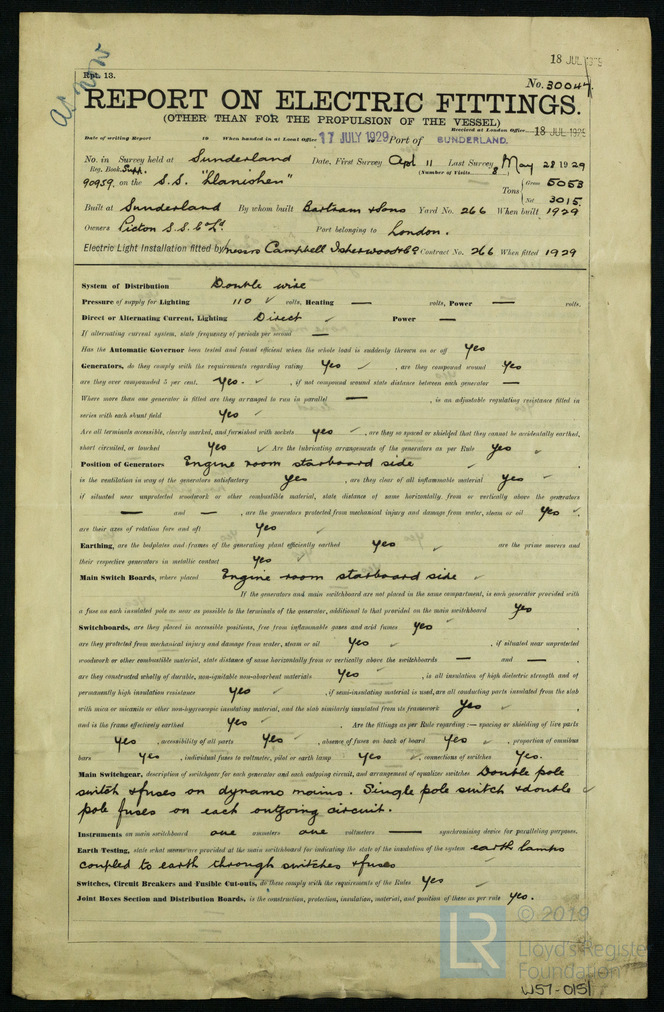 18 JUL 1929
Rpt. 13.
as now
No. 30047.
REPORT ON ELECTRIC FITTINGS.
(OTHER THAN FOR THE PROPULSION OF THE VESSEL)
Received at London Office 18 JUL 1929
Date of writing Report 19 When handed in at Local Office 17 JULY 1929 Port of SUNDERLAND.
No. in Survey held at Sunderland Date, First Survey Apl 11 Last Survey May 28 1929
Reg. Book. Supp. (Number of Visits 8)
90959. on the S.S. "Llanishen" Tons Gross 5053
Net 3015
Built at Sunderland By whom built Bartram & Sons Yard No. 266 When built 1929
Owners Picton S.S. Co Ld. Port belonging to London.
Electric Light Installation fitted by Messrs Campbell Isherwood & Co Contract No. 266 When fitted 1929
System of Distribution Double wire
Pressure of supply for Lighting 110 ✓ volts, Heating — volts, Power — volts.
Direct or Alternating Current, Lighting Direct ✓ Power —
If alternating current system, state frequency of periods per second —
Has the Automatic Governor been tested and found efficient when the whole load is suddenly thrown on or off Yes
Generators, do they comply with the requirements regarding rating Yes ✓, are they compound wound Yes
are they over compounded 5 per cent. Yes. ✓, if not compound wound state distance between each generator —
Where more than one generator is fitted are they arranged to run in parallel —, is an adjustable regulating resistance fitted in
series with each shunt field Yes ✓
Are all terminals accessible, clearly marked, and furnished with sockets Yes ✓, are they so spaced or shielded that they cannot be accidentally earthed,
short circuited, or touched Yes ✓ Are the lubricating arrangements of the generators as per Rule Yes ✓
Position of Generators Engine room starboard side ✓
is the ventilation in way of the generators satisfactory Yes ✓, are they clear of all inflammable material Yes ✓
if situated near unprotected woodwork or other combustible material, state distance of same horizontally from or vertically above the generators
— and —, are the generators protected from mechanical injury and damage from water, steam or oil Yes ✓
are their axes of rotation fore and aft Yes ✓
Earthing, are the bedplates and frames of the generating plant efficiently earthed Yes ✓ are the prime movers and
their respective generators in metallic contact Yes ✓
Main Switch Boards, where placed Engine room starboard side ✓
If the generators and main switchboard are not placed in the same compartment, is each generator provided with
a fuse on each insulated pole as near as possible to the terminals of the generator, additional to that provided on the main switchboard Yes
Switchboards, are they placed in accessible positions, free from inflammable gases and acid fumes Yes ✓,
are they protected from mechanical injury and damage from water, steam or oil Yes ✓, if situated near unprotected
woodwork or other combustible material, state distance of same horizontally from or vertically above the switchboards — and —,
are they constructed wholly of durable, non-ignitable non-absorbent materials Yes ✓, is all insulation of high dielectric strength and of
permanently high insulation resistance Yes ✓, if semi-insulating material is used, are all conducting parts insulated from the slab
with mica or micanite or other non-hygroscopic insulating material, and the slab similarly insulated from its framework Yes ✓,
and is the frame effectively earthed Yes ✓. Are the fittings as per Rule regarding:— spacing or shielding of live parts
Yes ✓, accessibility of all parts Yes ✓, absence of fuses on back of board Yes ✓, proportion of omnibus
bars Yes ✓, individual fuses to voltmeter, pilot or earth lamp Yes ✓, connections of switches Yes.
Main Switchgear, description of switchgear for each generator and each outgoing circuit, and arrangement of equalizer switches Double pole
switch & fuses on dynamo mains. Single pole switch & double ✓
pole fuses on each outgoing circuit.
Instruments on main switchboard one ammeters one voltmeters — synchronising device for paralleling purposes.
Earth Testing, state what means are provided at the main switchboard for indicating the state of the insulation of the system earth lamps
coupled to earth through switches & fuses ✓
Switches, Circuit Breakers and Fusible Cut-outs, do these comply with the requirements of the Rules Yes ✓
Joint Boxes Section and Distribution Boards, is the construction, protection, insulation, material, and position of these as per rule Yes.
LR
© 2019
Lloyd's Register
Foundation
W57-0151